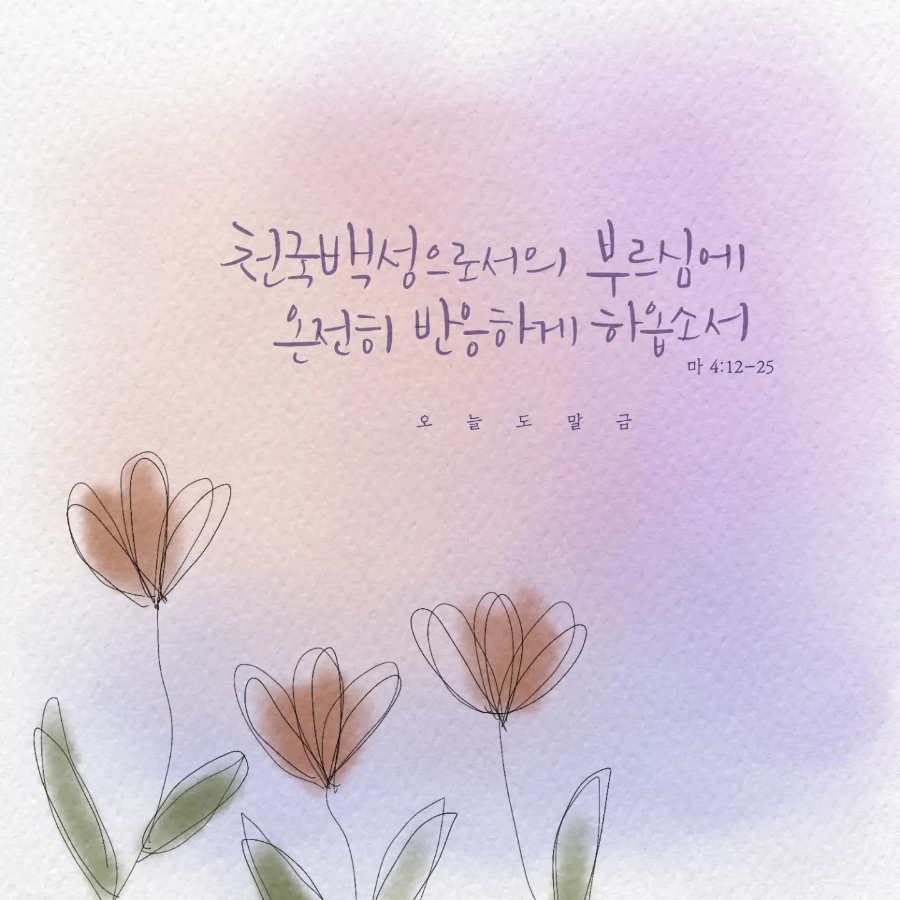 천국백성으로서의 부르심에
온전히 반응하게 하옵소서
마 4:12-25
오늘도말금